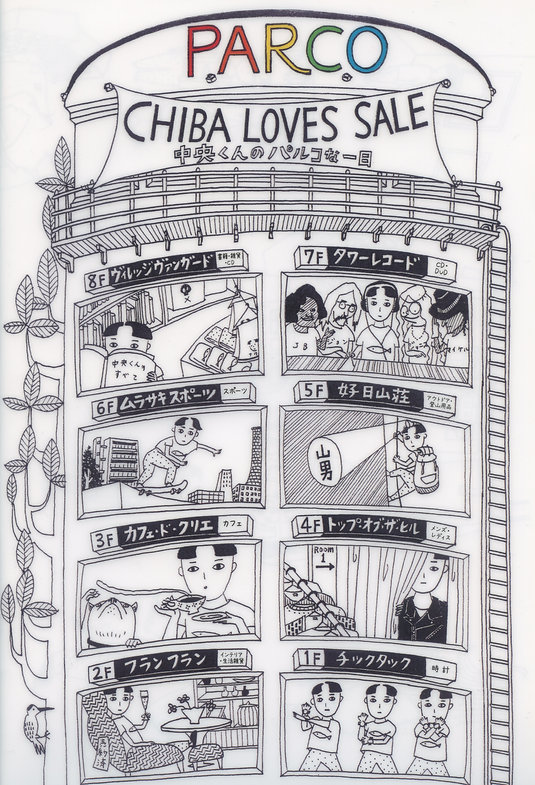 PARCO
CHIBA LOVES SALE
中央くんのパルコな一日
8F ヴィレッジヴァンガード 書籍・雑貨・CD
7F タワーレコード CD・DVD
中央くんの
すべて
JB
ジョン
マイケル
6F ムラサキスポーツ スポーツ
5F 好日山荘 アウトドア・登山用品
山男
3F カフェ・ド・クリエ カフェ
4F トップ・オブ・ザ・ヒル メンズ・レディス
ROOM
1
2F フランフラン インテリア・生活雑貨
1F チックタック 時計